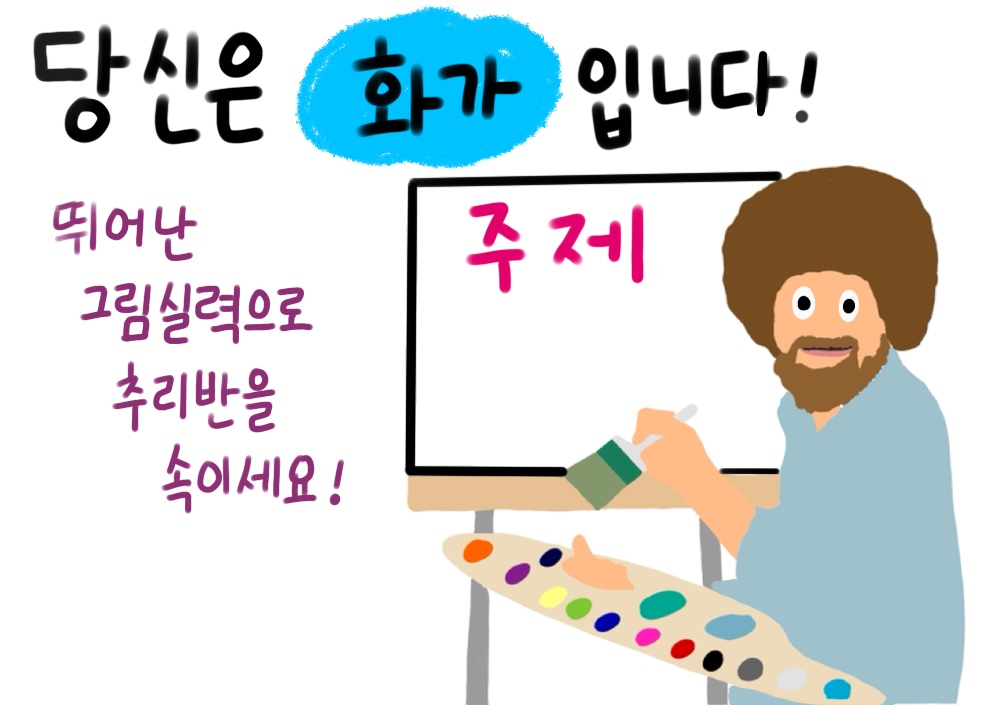 당신은 화가 입니다!
뛰어난
그림실력으로
추리반을
속이세요!
주제